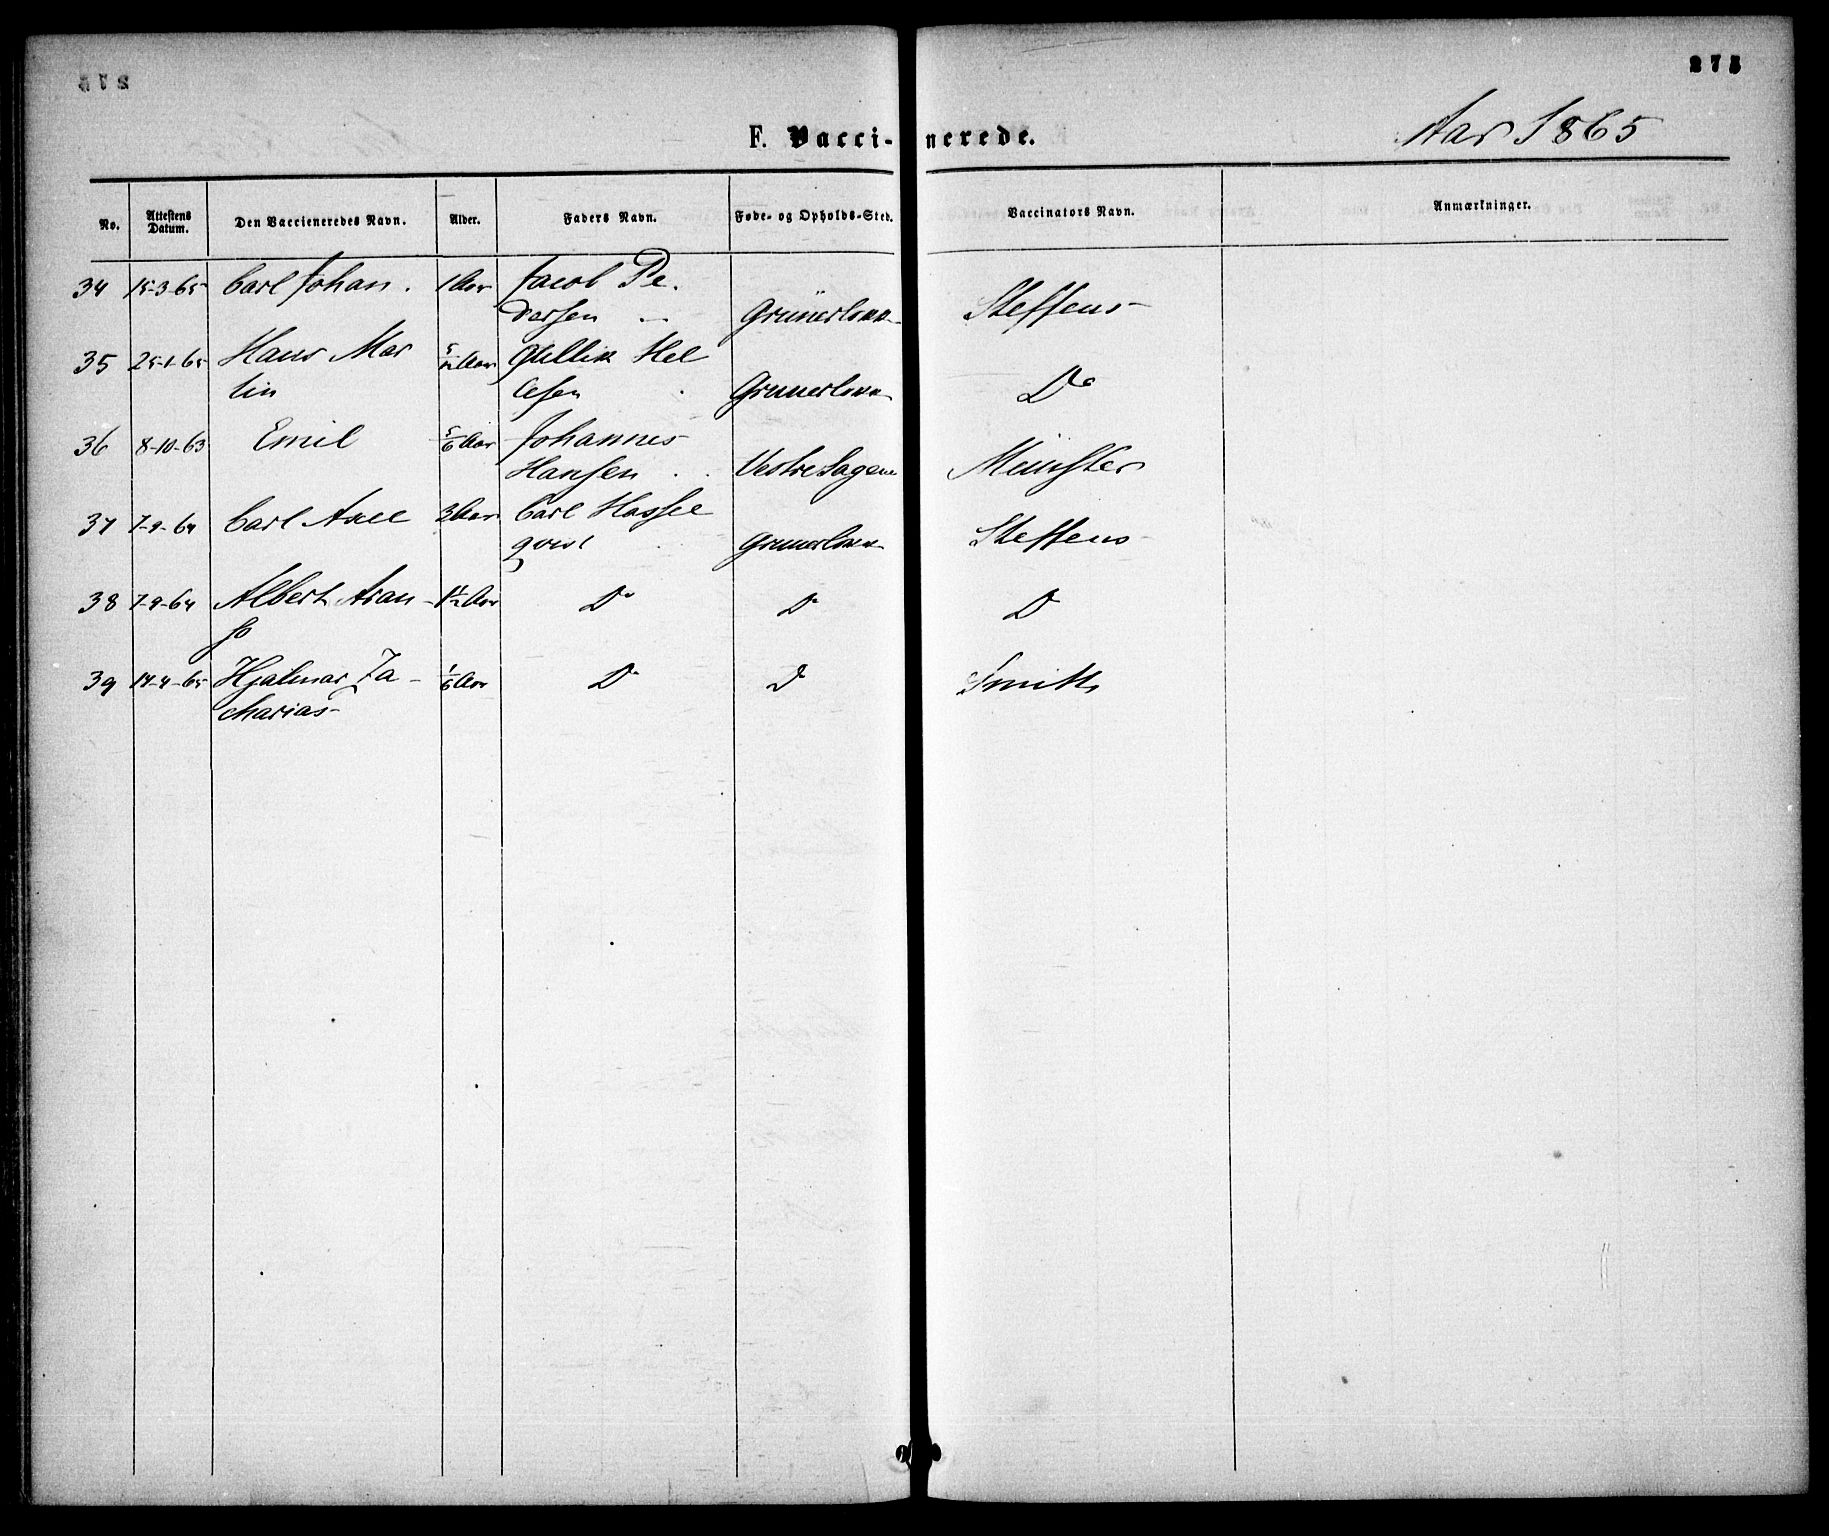 275
F. Vaccinerede.
Aar 1865
No. Attestens Datum. Den Vaccieneredes Navn. Alder. Faders Navn. Føde- og Opholds-Sted. Vaccinators Navn. Anmærkninger.
34 15-3-65 Carl Johan. 1 Aar Jacob Pe
dersen Grünerløkk Steffens
35 25-1-65 Hans Mar 5/12 Aar Gullik Hel
tin gesen Grunerløkk Do
36 8-10-63 Emil 5/6 Aar Johannes
Hansen Vestre Sagene Münster
37 7-9-64 Carl Axel 3 Aar Carl Hassel
qvist Grunerløkk Steffens
38 7-9-64 Albert Aran- 1 1/2 Aar Do Do D
39 14-4-65 Hjalmar Za- 1/6 Aar Do D Smith
charias